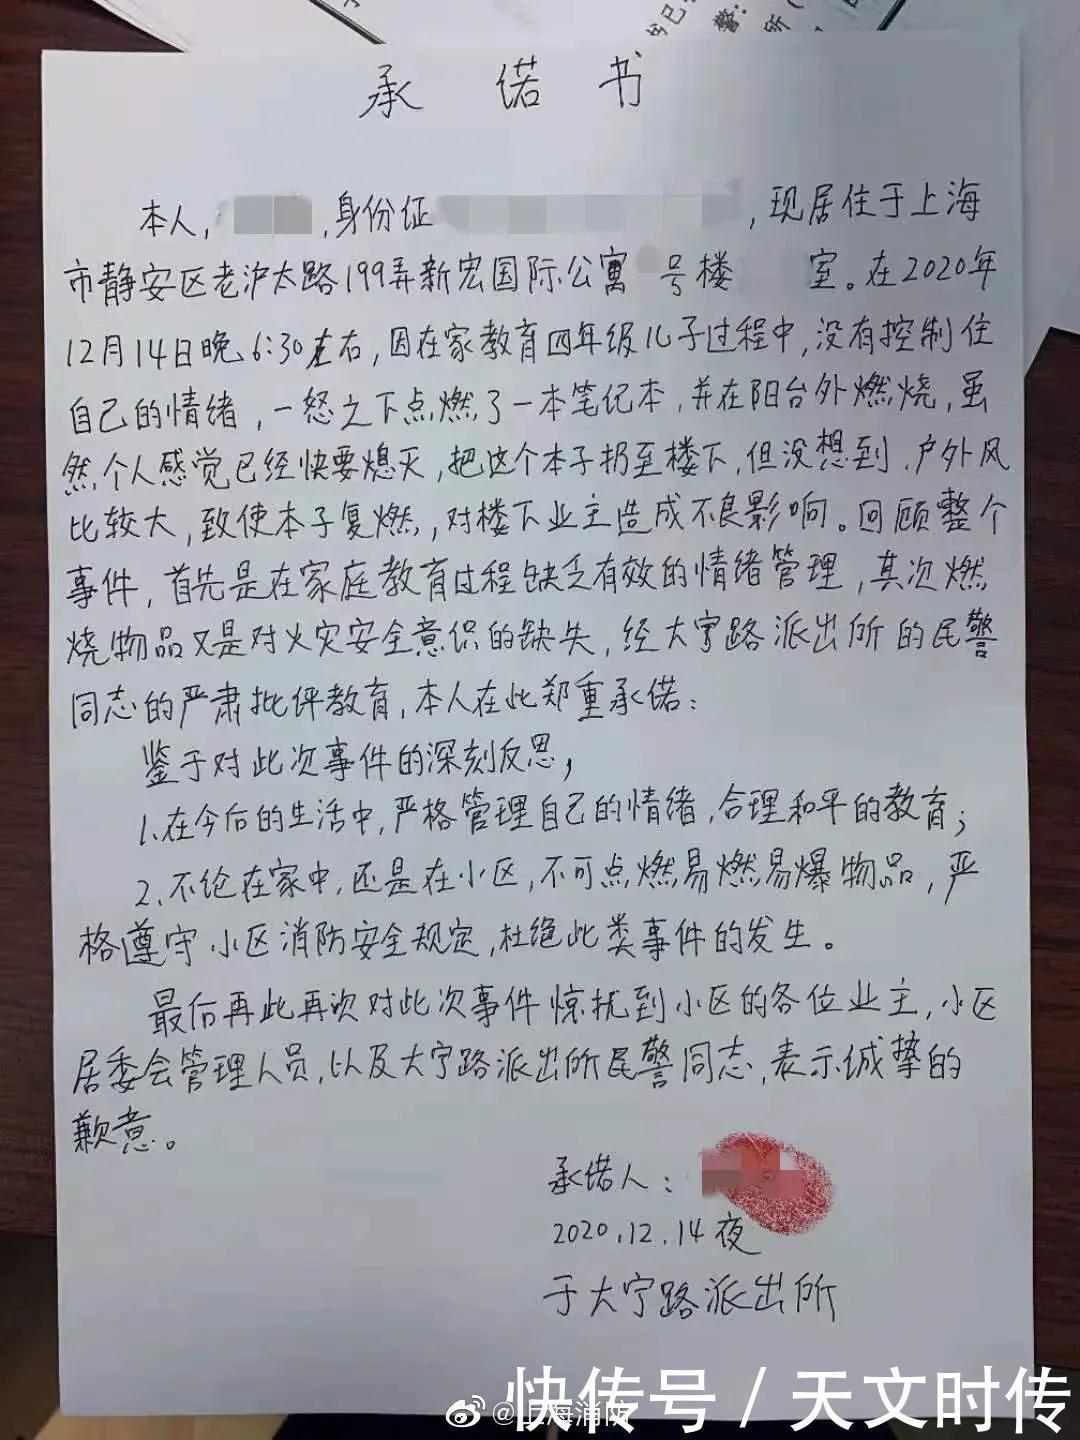 承诺书
本人，，身份证，现居住于上海
市静安区老沪太路199弄新宏国际公寓号楼室。在2020年
12月14日晚6:30左右，因在家教育四年级儿子过程中，没有控制住
自己的情绪，一怒之下点燃了一本笔记本，并在阳台外燃烧，虽
然个人感觉已经快要熄灭，把这个本子扔至楼下，但没想到，户外风
比较大，致使本子复燃，对楼下业主造成不良影响。回顾整个
事件，首先是在家庭教育过程缺乏有效的情绪管理，其次燃
烧物品又是对火灾安全意识的缺失，经大宁路派出所的民警
同志的严肃批评教育，本人在此郑重承诺：
鉴于对此次事件的深刻反思，
1、在今后的生活中，严格管理自己的情绪，合理和平的教育；
2、不论在家中，还是在小区，不可点燃易燃易爆物品，严
格遵守小区消防安全规定，杜绝此类事件的发生。
最后再此再次对此次事件惊扰到小区的各位业主，小区
居委会管理人员，以及大宁路派出所民警同志，表示诚挚的
歉意。
承诺人：
2020.12.14夜
于大宁路派出所
@上海消防
快传号/天文时传